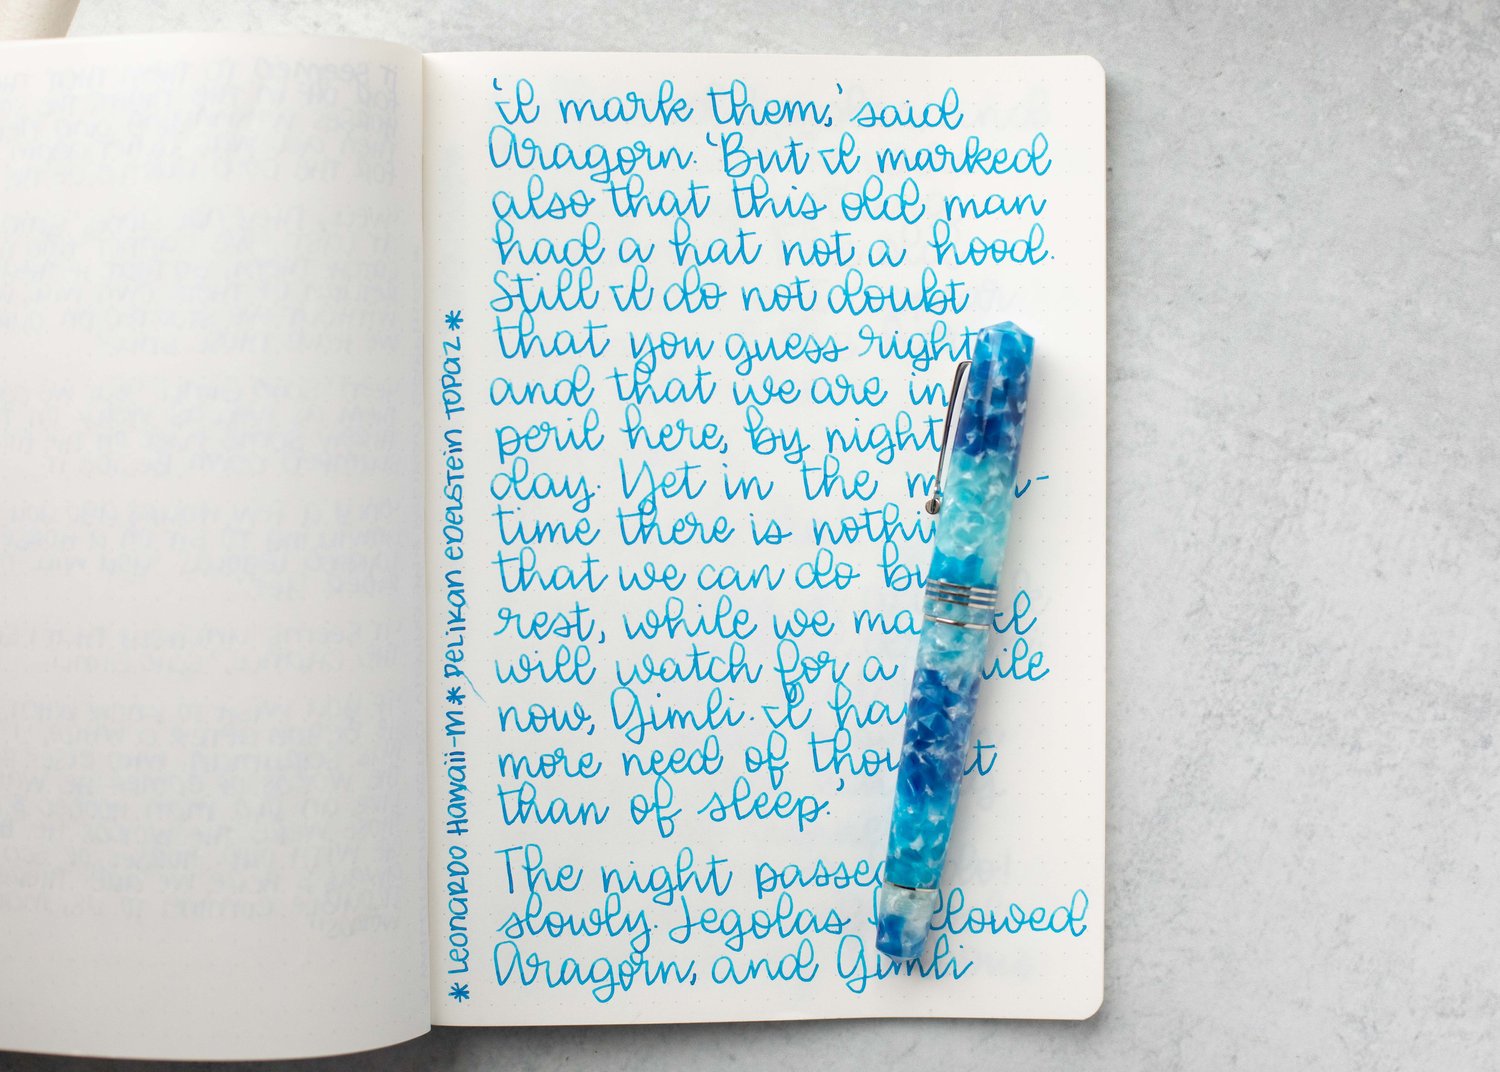 'I mark them,' said
Aragorn. 'But I marked
also that this old man
had a hat not a hood.
Still I do not doubt
that you guess right
and that we are in
peril here, by night
day. Yet in the
time there is
that we can do
rest, while we
will watch for a
now, Gimli. I
more need of
than of sleep.'
The night passed
slowly. Legolas
Aragorn, and Gimli
* Leonardo Hawaii-M * Pelikan Edelstein Topaz *